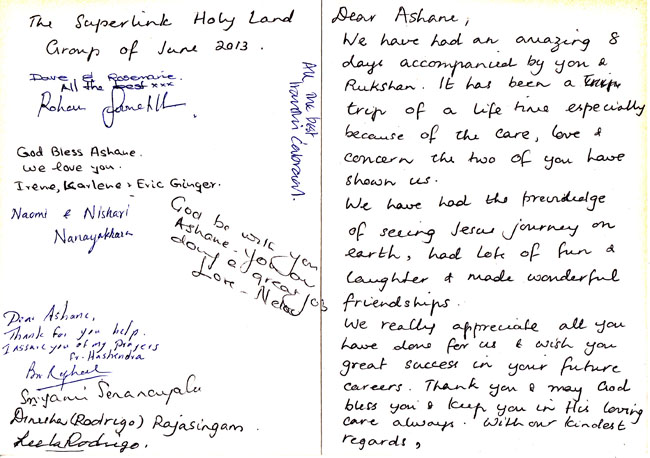 The Superlink Holy Land
Group of June 2013.
Dave & Rosemarie
All the best xxx
Rohan
All the best
God Bless Ashane.
we love you.
Irene, Karlene & Eric Ginger.
Naomi & Nishari
Nanayakkara
God be with you
Ashane - You are
doing a great job
Love -
Dear Ashane,
Thank for you help.
I assure you of my prayers
Sriyani Senanayake
Dinesha (Rodrigo) Rajasingam
Leela Rodrigo.
Dear Ashane,
We have had an amazing 8
days accompanied by you &
Rukshan. It has been a
trip of a life time especially
because of the care, love &
concern the two of you have
shown us.
We have had the previledge
of seeing Jesus journey on
earth, had lots of fun &
laughter & made wonderful
friendships.
We really appreciate all you
have done for us & wish you
great success in your future
careers. Thank you & may God
bless you & keep you in His loving
care always. With our kindest
regards,